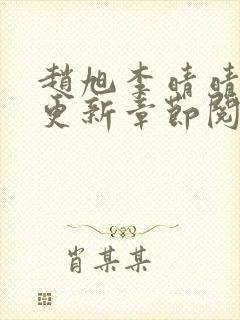 趙旭李晴晴
更新章節閱
肖某某